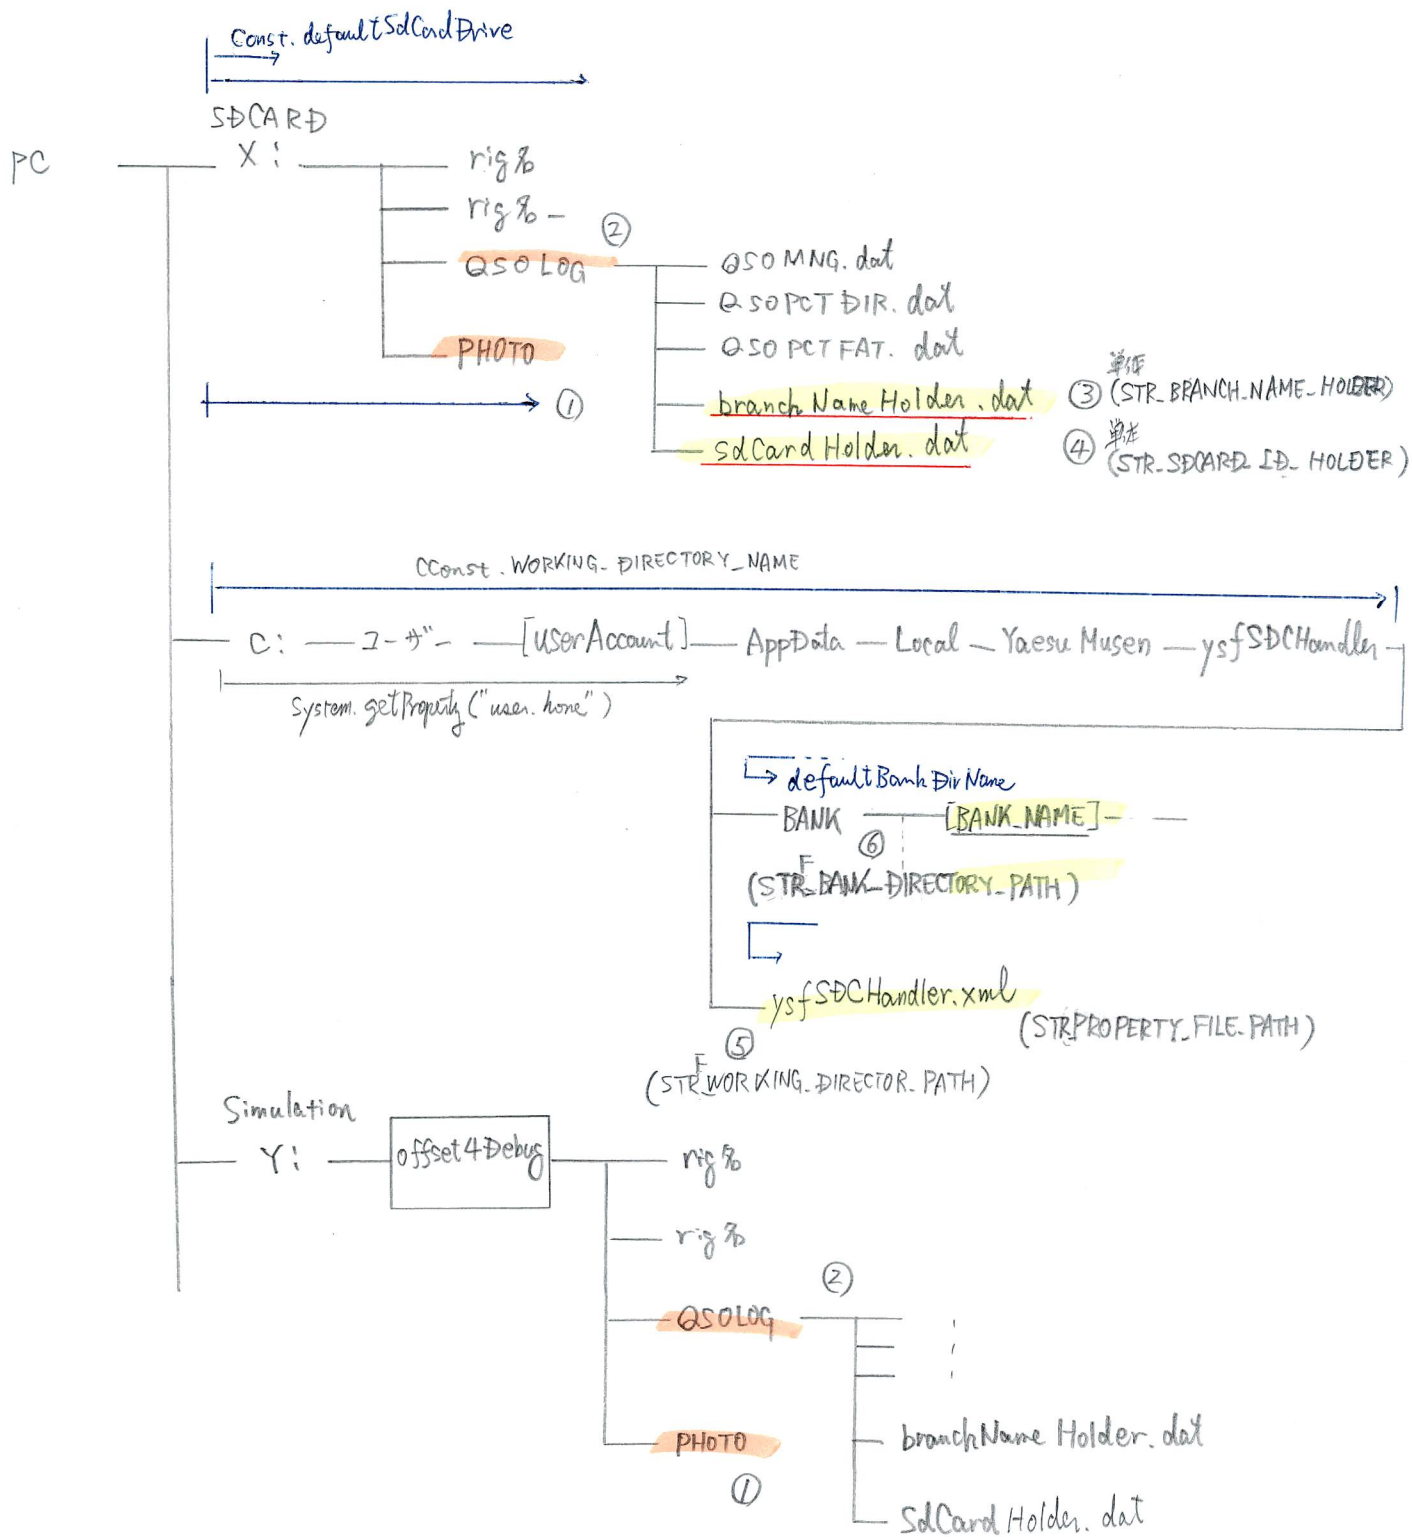 Const. defaultSdCardDrive
SDCARD
PC
X:
rig%
rig% –
②
QSOLOG
QSOMNG.dat
QSOPCTDIR.dat
QSOPCTFAT.dat
PHOTO
①
branchNameHolder.dat
③ (STR_BRANCH_NAME_HOLDER)
sdCardHolder.dat
④ (STR_SDCARD_ID_HOLDER)
CConst.WORKING_DIRECTORY_NAME
C: ユーザー [userAccount] AppData Local Yaesu Musen ysfSDCHandler
System.getProperty("user.home")
defaultBankDirName
BANK [BANK_NAME]
⑥
F
(STR_BANK_DIRECTORY_PATH)
ysfSDCHandler.xml
(STRPROPERTY_FILE.PATH)
⑤
F
(STR_WORKING_DIRECTOR_PATH)
Simulation
Y: offset4Debug
rig%
rig%
②
QSOLOG
PHOTO
①
branchNameHolder.dat
SdCardHolder.dat